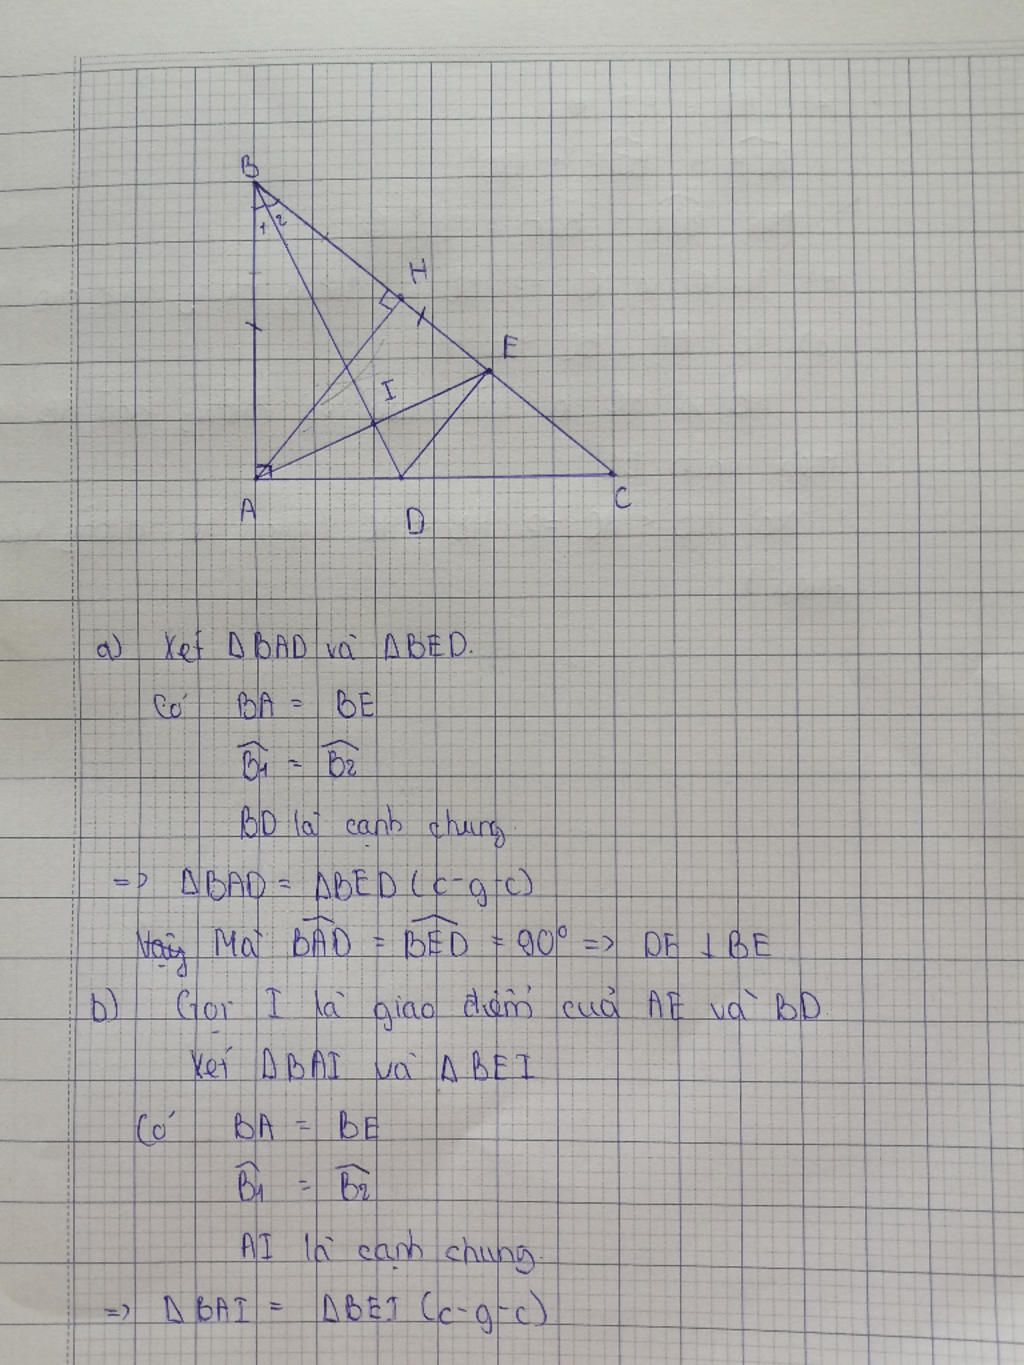 B
1 2
H
E
I
A
D
C
a) Xét ΔBAD và ΔBED.
Có BA = BE
B̂1 = B̂2
BD là cạnh chung.
=> ΔBAD = ΔBED (c-g-c)
Mà BAD = BED = 90° => DE ⊥ BE
b) Gọi I là giao điểm của AE và BD
Xét ΔBAI và ΔBEI
Có BA = BE
B̂1 = B̂2
AI là cạnh chung.
=> ΔBAI = ΔBEI (c-g-c)